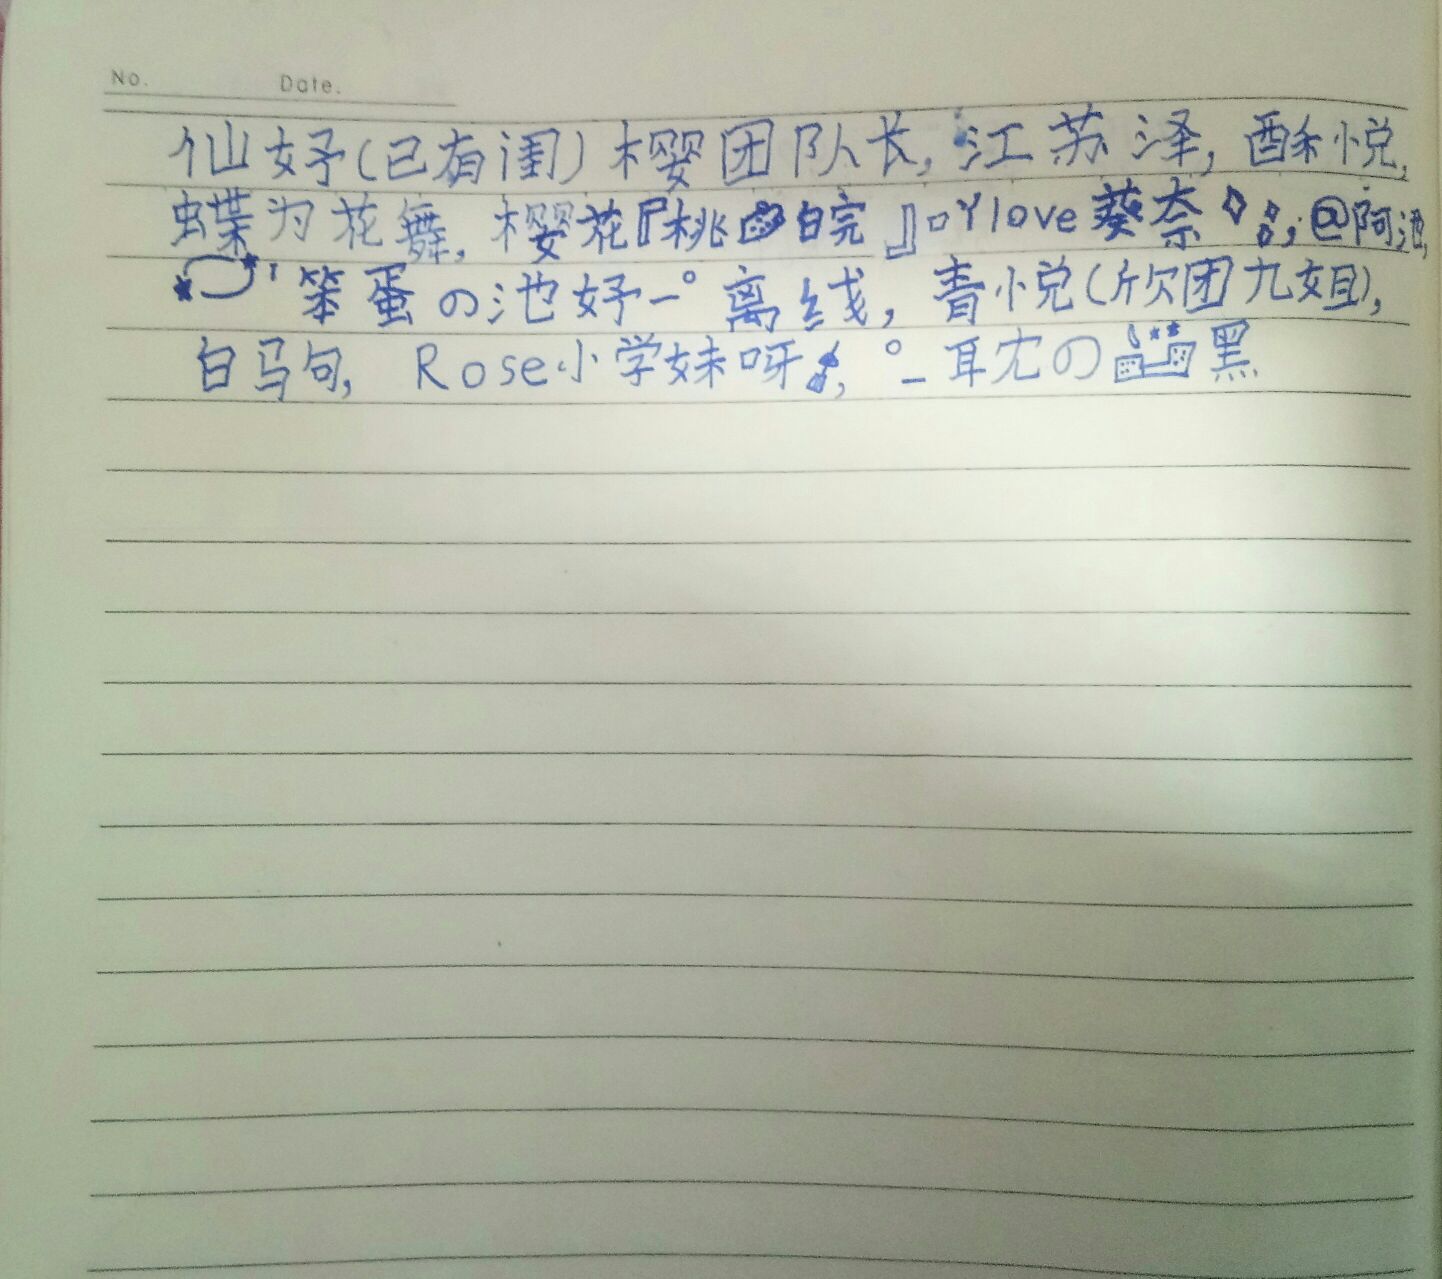 No. Date.
仙妤(已有闺)樱团队长,江苏泽,酥悦,
蝶为花舞,樱花『桃白皖』口Ylove葵奈;@阿池,
笨蛋の池妤一°离线,青悦(欣团九姐),
白马句,Rose小学妹呀,°_耳尤の黑